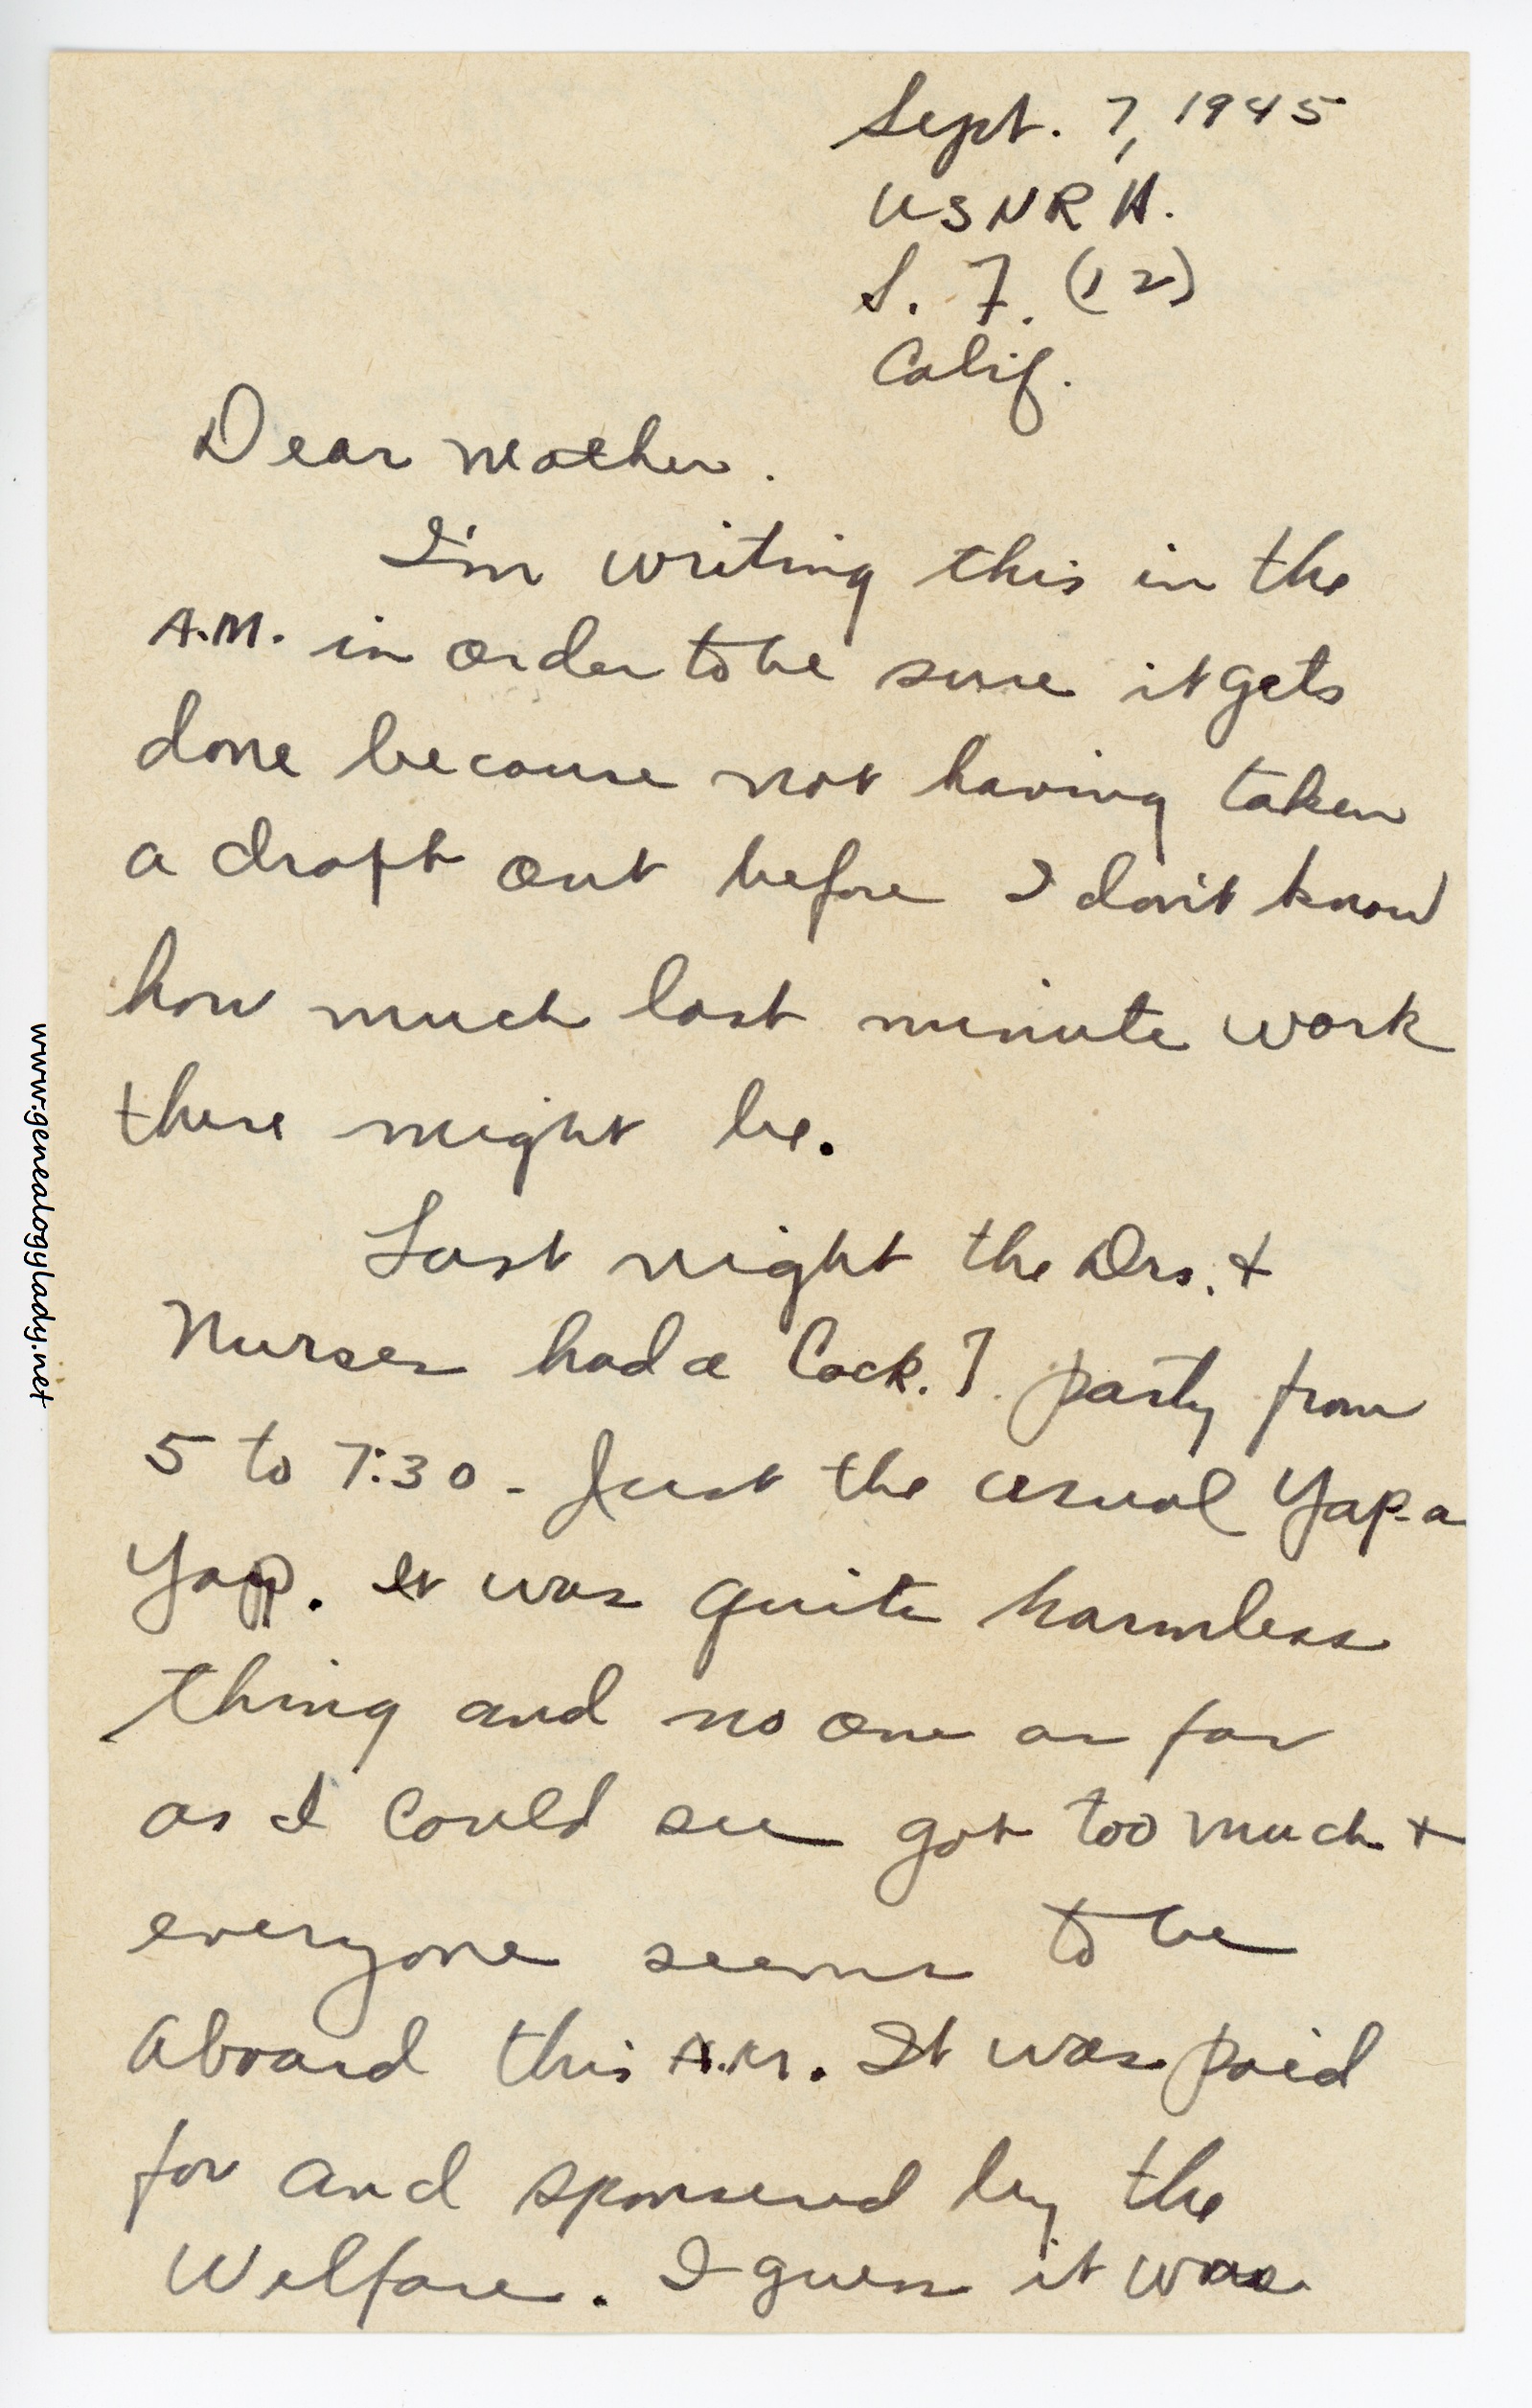 Sept. 7, 1945
USNRH.
S. F. (12)
Calif.
Dear Mother.
I'm writing this in the
A.M. in order to be sure it gets
done because not having taken
a draft out before I don't know
how much last minute work
there might be.
Last night the Drs. +
Nurses had a Cock. T. party from
5 to 7:30 - Just the usual Yap-a
Yap. It was quite harmless
thing and no one as far
as I could see got too much +
everyone seems to be
aboard this A.M. It was paid
for and sponsered by the
Welfare. I guess it was
www.genealogylady.net